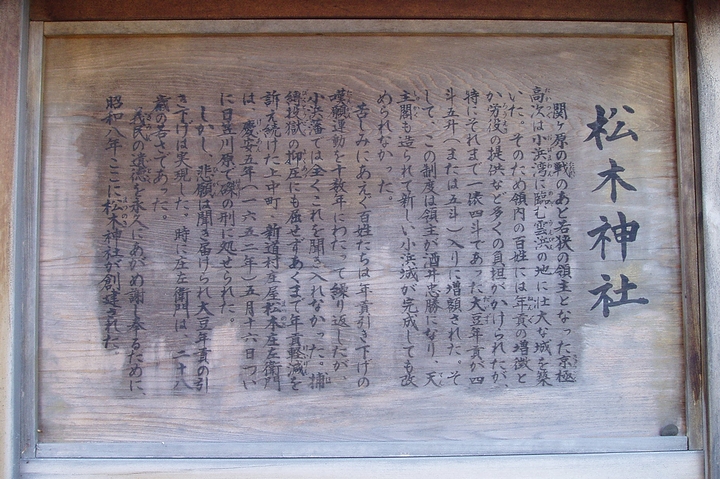 松木神社
関ヶ原の戦のあと若狭の領主となった京極
高次は小浜湾に臨む雲浜の地に壮大な城を築
いた。そのため領内の百姓には年貢の増徴と
か労役の提供など多くの負担がかけられたが、
特にそれまで一俵四斗であった大豆年貢が四
斗五升(または五斗)入りに増額された。そ
して、この制度は領主が酒井忠勝になり、天
主閣も造られて新しい小浜城が完成しても改
められなかった。
苦しみにあえぐ百姓たちは年貢引き下げの
嘆願運動を十数年にわたって繰り返したが、
小浜藩では全くこれを聞き入れなかった。捕
縛投獄の抑圧にも屈せずあくまで年貢軽減を
訴え続けた上中町、新道村庄屋松木庄左衛門
は、慶安五年(一六五二年)五月十六日つい
に日笠川原で磔の刑に処せられた。
しかし、悲願は聞き届けられ大豆年貢の引
き下げは実現した。時に庄左衛門は、二十八
歳の若さであった。
義民の遺徳を永久にあがめ謝し奉るために、
昭和八年ここに松木神社が創建された。